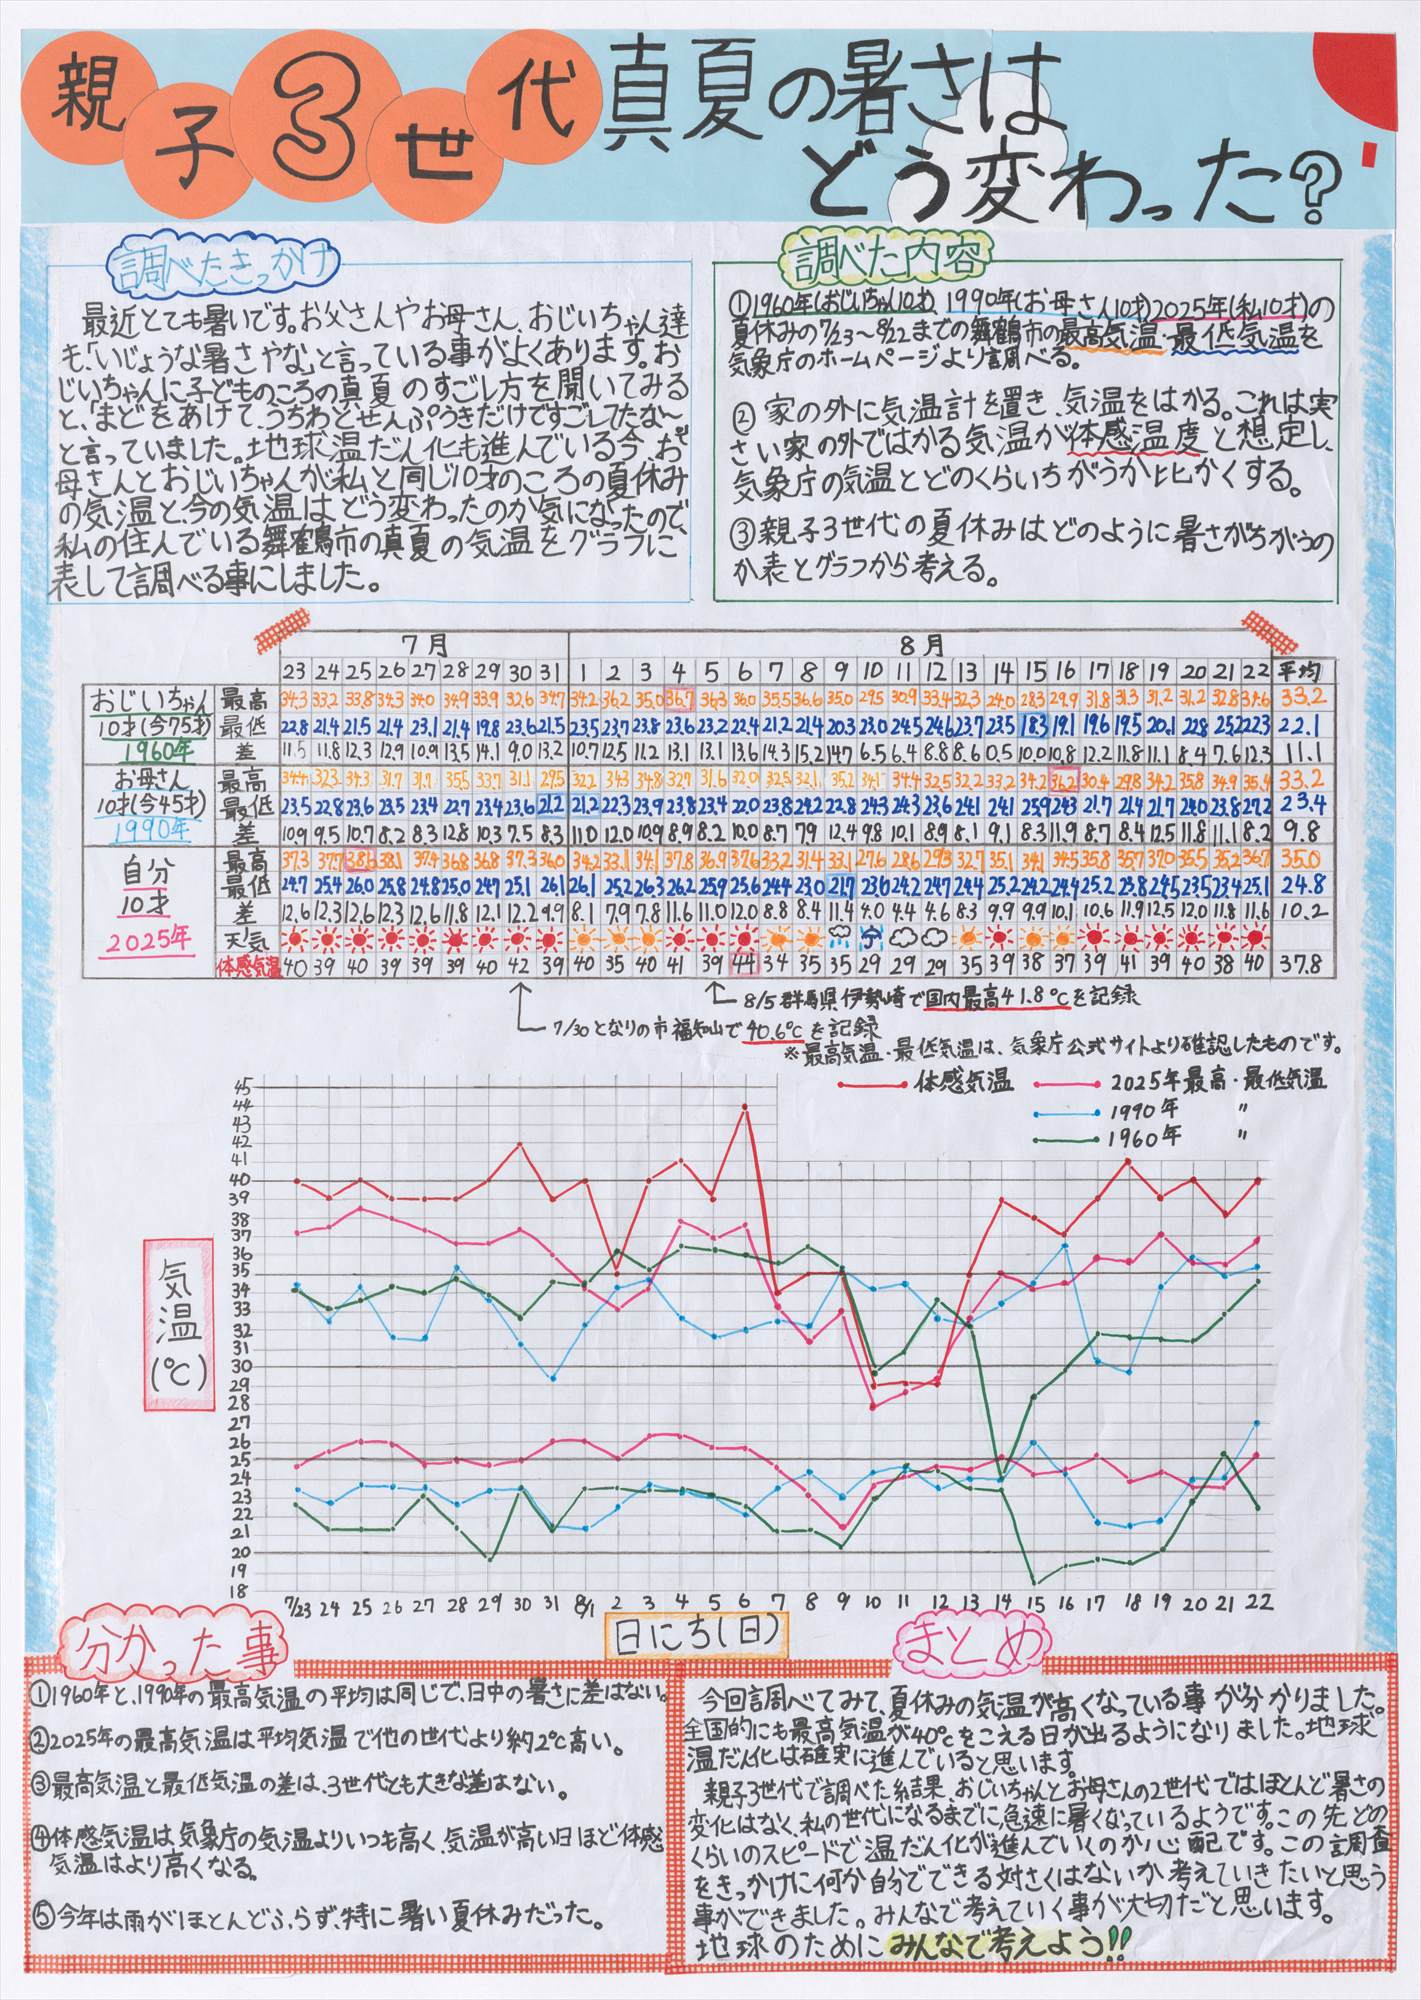 親子3世代真夏の暑さは
どう変わった?
調べたきっかけ
最近とても暑いです。お父さんやお母さん、おじいちゃん達
も、「いじょうな暑さやな」と言っている事がよくあります。お
じいちゃんに子どものころの真夏のすごし方を聞いてみる
と、「まどをあけて、うちわとせんぷうきだけですごしてたな〜」
と言っていました。地球温だん化も進んでいる今、お
母さんとおじいちゃんが私と同じ10才のころの夏休み
の気温と、今の気温はどう変わったのか気になったので、
私の住んでいる舞鶴市の真夏の気温をグラフに
表して調べる事にしました。
調べた内容
①1960年(おじいちゃん10才)、1990年(お母さん10才)2025年(私10才)の
夏休みの7/23〜8/22までの舞鶴市の最高気温・最低気温を
気象庁のホームページより調べる。
② 家の外に気温計を置き、気温をはかる。これは実
さい家の外ではかる気温が体感温度と想定し、
気象庁の気温とどのくらいちがうか比かくする。
③親子3世代の夏休みはどのように暑さがちがうの
か表とグラフから考える。
7月 8月
23 24 25 26 27 28 29 30 31 1 2 3 4 5 6 7 8 9 10 11 12 13 14 15 16 17 18 19 20 21 22 平均
おじいちゃん 最高 34.3 33.2 33.8 34.3 34.0 34.9 33.9 32.6 34.7 34.2 36.2 35.0 36.7 36.3 36.0 35.5 36.6 35.0 29.5 30.9 33.4 32.3 24.0 28.3 29.9 31.8 31.3 31.2 31.2 32.8 34.6 33.2
10才(今75才) 最低 22.8 21.4 21.5 21.4 23.1 21.4 19.8 23.6 21.5 23.5 23.7 23.8 23.6 23.2 22.4 21.2 21.4 20.3 23.0 24.5 24.6 23.7 23.5 18.3 19.1 19.6 19.5 20.1 22.8 25.2 22.3 22.1
1960年 差 11.5 11.8 12.3 12.9 10.9 13.5 14.1 9.0 13.2 10.7 12.5 11.2 13.1 13.1 13.6 14.3 15.2 14.7 6.5 6.4 8.8 8.6 0.5 10.0 10.8 12.2 11.8 11.1 8.4 7.6 12.3 11.1
お母さん 最高 34.4 32.3 34.3 31.7 31.7 35.5 33.7 31.1 29.5 32.2 34.3 34.8 32.7 31.6 32.0 32.5 32.1 35.2 34.1 34.4 32.5 32.2 33.2 34.2 36.2 30.4 29.8 34.2 35.8 34.9 35.4 33.2
10才(今45才) 最低 23.5 22.8 23.6 23.5 23.4 22.7 23.4 23.6 21.2 21.2 22.3 23.9 23.8 23.4 22.0 23.8 24.2 22.8 24.3 24.3 23.6 24.1 24.1 25.9 24.3 21.7 21.4 21.7 24.0 23.8 27.2 23.4
1990年 差 10.9 9.5 10.7 8.2 8.3 12.8 10.3 7.5 8.3 11.0 12.0 10.9 8.9 8.2 10.0 8.7 7.9 12.4 9.8 10.1 8.9 8.1 9.1 8.3 11.9 8.7 8.4 12.5 11.8 11.1 8.2 9.8
自分 最高 37.3 37.7 38.6 38.1 37.4 36.8 36.8 37.3 36.0 34.2 33.1 34.1 37.8 36.9 37.6 33.2 31.4 33.1 27.6 28.6 29.3 32.7 35.1 34.1 34.5 35.8 35.7 37.0 35.5 35.2 36.7 35.0
10才 最低 24.7 25.4 26.0 25.8 24.8 25.0 24.7 25.1 26.1 26.1 25.2 26.3 26.2 25.9 25.6 24.4 23.0 21.7 23.6 24.2 24.7 24.4 25.2 24.2 24.4 25.2 23.8 24.5 23.5 23.4 25.1 24.8
差 12.6 12.3 12.6 12.3 12.6 11.8 12.1 12.2 9.9 8.1 7.9 7.8 11.6 11.0 12.0 8.8 8.4 11.4 4.0 4.4 4.6 8.3 9.9 9.9 10.1 10.6 11.9 12.5 12.0 11.8 11.6 10.2
2025年 天気
体感気温 40 39 40 39 39 39 40 42 39 40 35 40 41 39 44 34 35 35 29 29 29 35 39 38 37 39 41 39 40 38 40 37.8
8/5 群馬県伊勢崎で国内最高41.8℃を記録
7/30 となりの市福知山で40.6℃を記録
※最高気温・最低気温は、気象庁公式サイトより確認したものです。
体感気温 2025年最高・最低気温
1990年 〃
1960年 〃
45
44
43
42
41
40
39
38
37
36
35
34
33
32
31
30
29
28
27
26
25
24
23
22
21
20
19
18
気温(℃)
7/23 24 25 26 27 28 29 30 31 8/1 2 3 4 5 6 7 8 9 10 11 12 13 14 15 16 17 18 19 20 21 22
日にち(日)
分かった事
①1960年と、1990年の最高気温の平均は同じで、日中の暑さに差はない。
②2025年の最高気温は平均気温で他の世代より約2℃高い。
③最高気温と最低気温の差は、3世代とも大きな差はない。
④体感気温は気象庁の気温よりいつも高く、気温が高い日ほど体感
気温はより高くなる。
⑤今年は雨がほとんどふらず、特に暑い夏休みだった。
まとめ
今回調べてみて、夏休みの気温が高くなっている事が分かりました。
全国的にも最高気温が40℃をこえる日が出るようになりました。地球
温だん化は確実に進んでいると思います。
親子3世代で調べた結果、おじいちゃんとお母さんの2世代ではほとんど暑さの
変化はなく、私の世代になるまでに急速に暑くなっているようです。この先どの
くらいのスピードで温だん化が進んでいくのか心配です。この調査
をきっかけに何か自分でできる対さくはないか考えていきたいと思う
事ができました。みんなで考えていく事が大切だと思います。
地球のためにみんなで考えよう!!